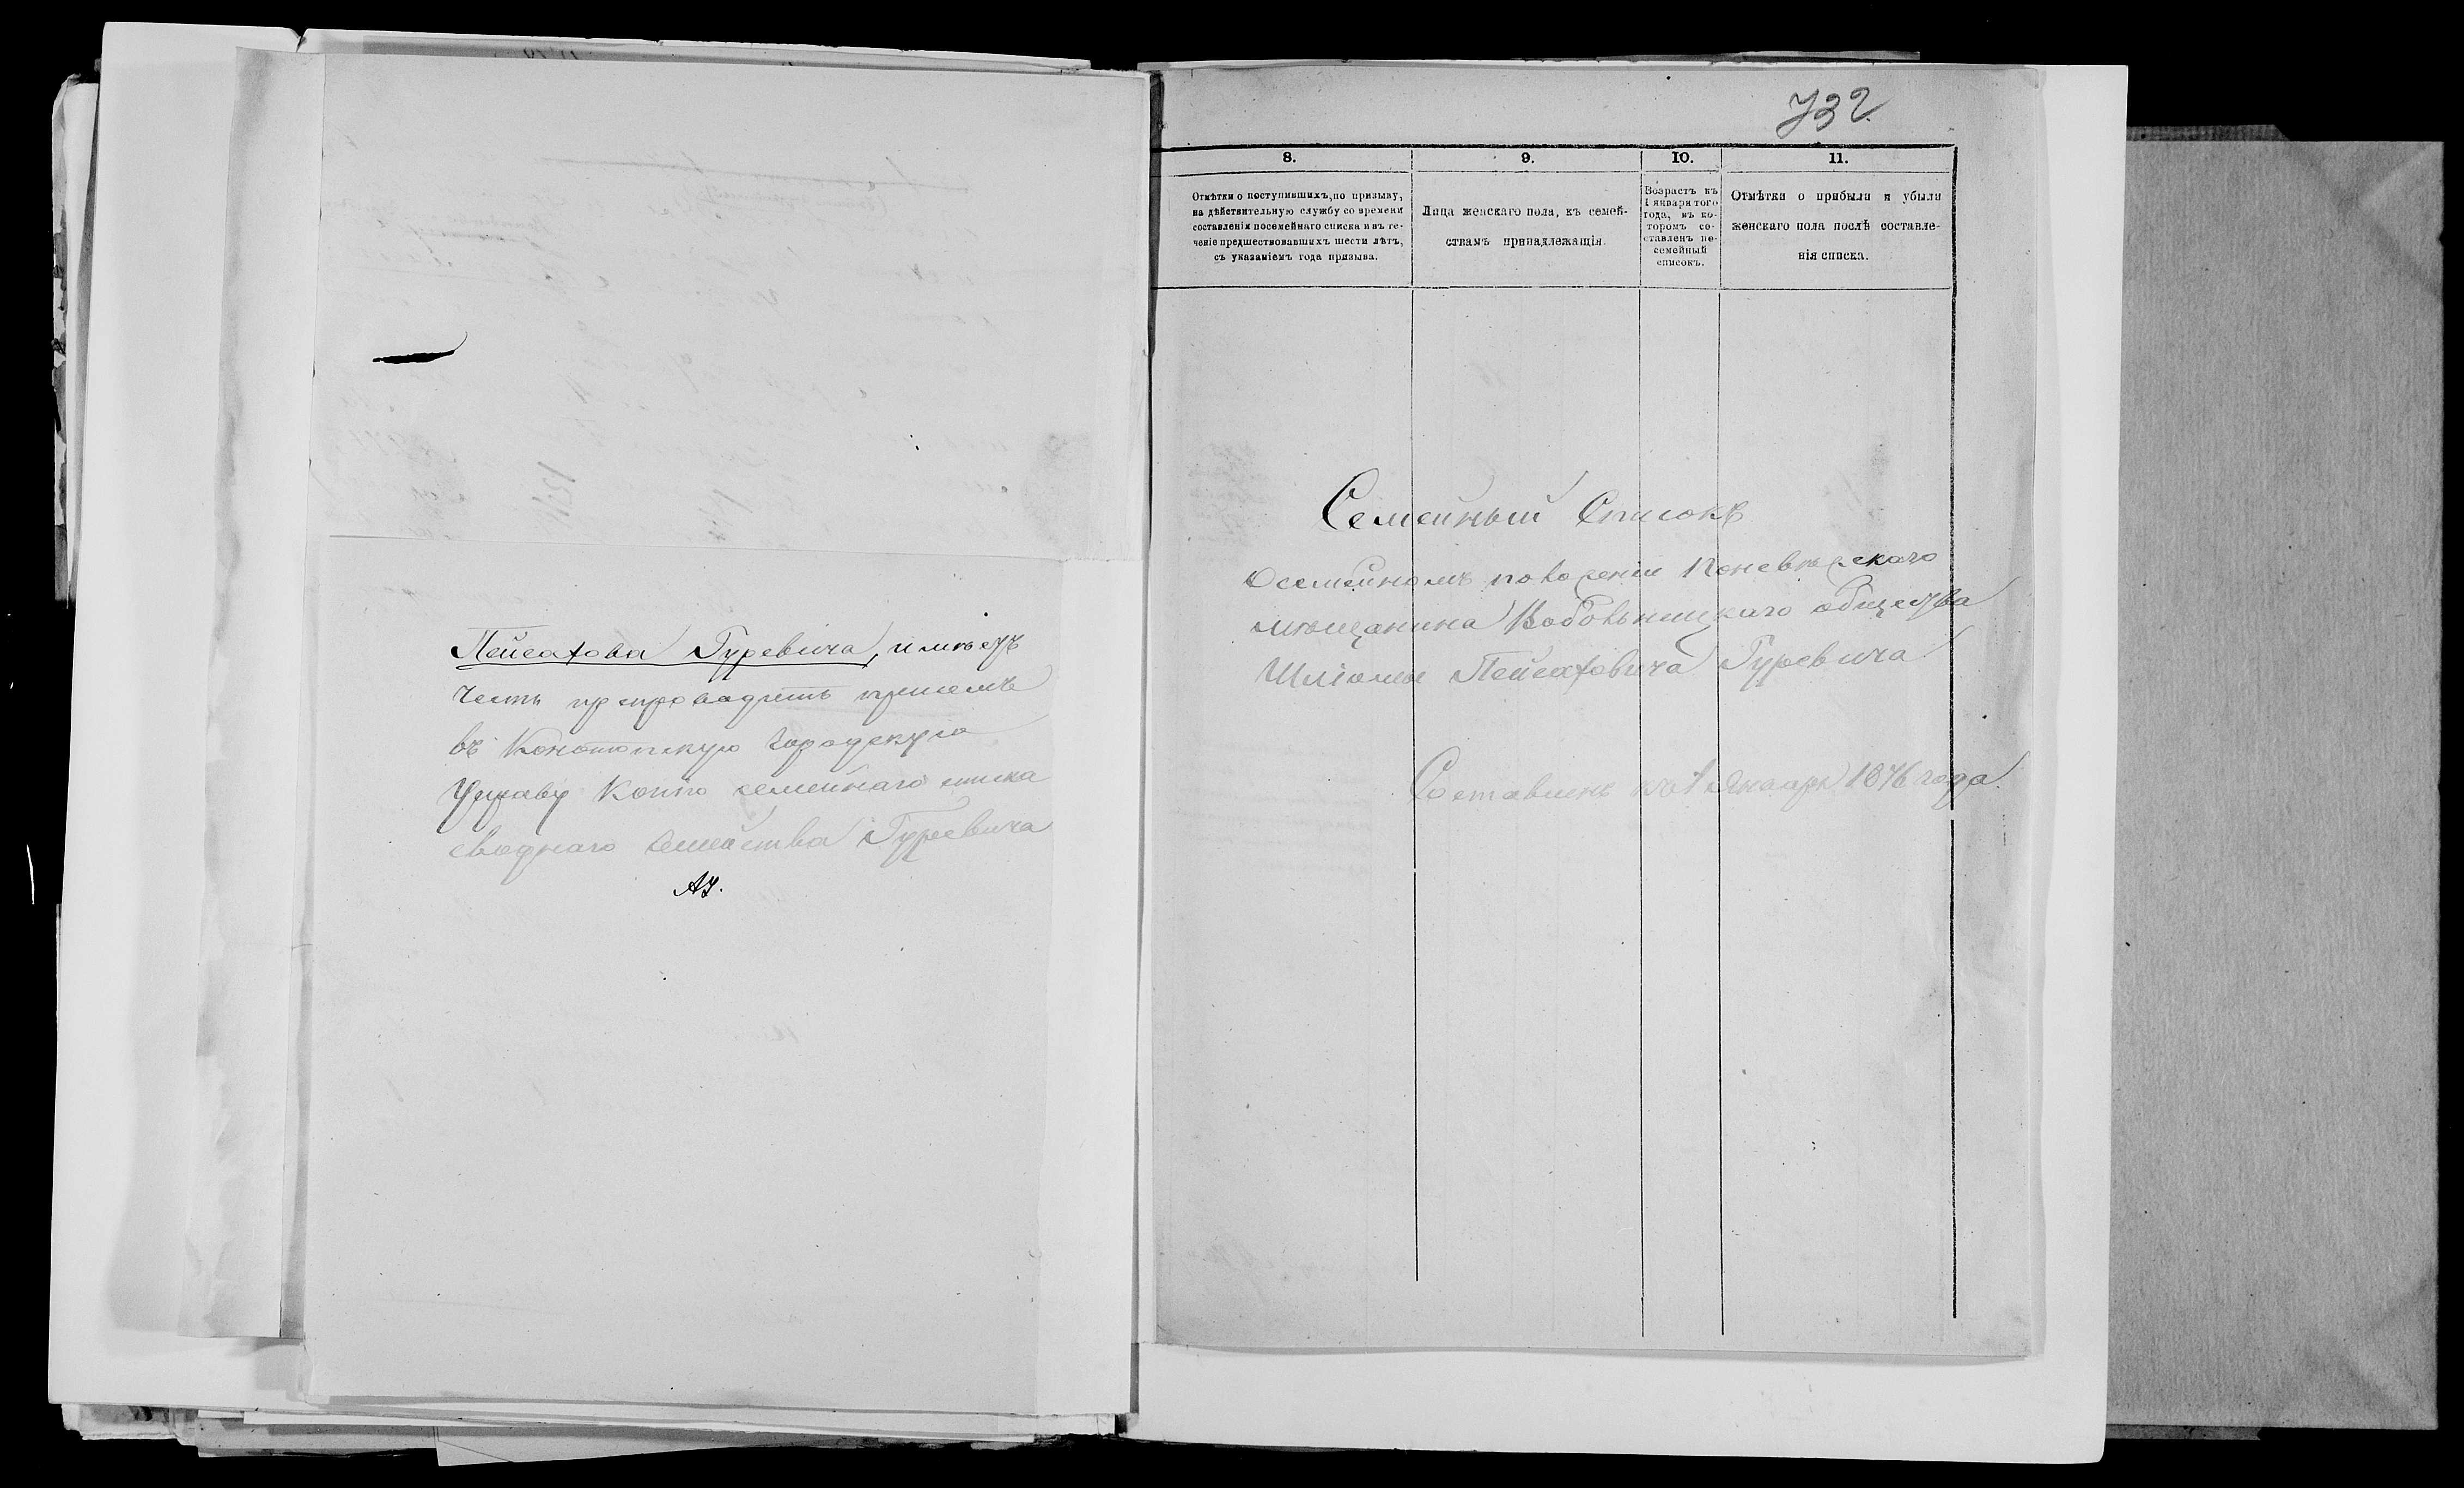 Пейсахова Гуревича, имѣетъ
честь препроводить присемъ
въ Конотопскую Городскую
Управу копію семейнаго списка
своднаго семейства Гуревича
732
8.
9.
10.
11.
Отмѣтки о поступившихъ, по призыву,
на дѣйствительную службу со времени
составленія посемейнаго списка и въ те-
ченіе предшествовавшихъ шести лѣтъ,
съ указаніемъ года призыва.
Лица женскаго пола, къ семей-
ствамъ принадлежащія.
Возрастъ къ
1 января того
года, въ ко-
торомъ со-
ставленъ по-
семейный
списокъ.
Отмѣтки о прибыли и убыли
женскаго пола послѣ составле-
нія списка.
Семейный Списокъ
О семейномъ положеніи Поневежскаго
мѣщанина Вабольницкаго общества
Шліомы Пейсаховича Гуревича
Составленъ къ 1 Января 1876 года.